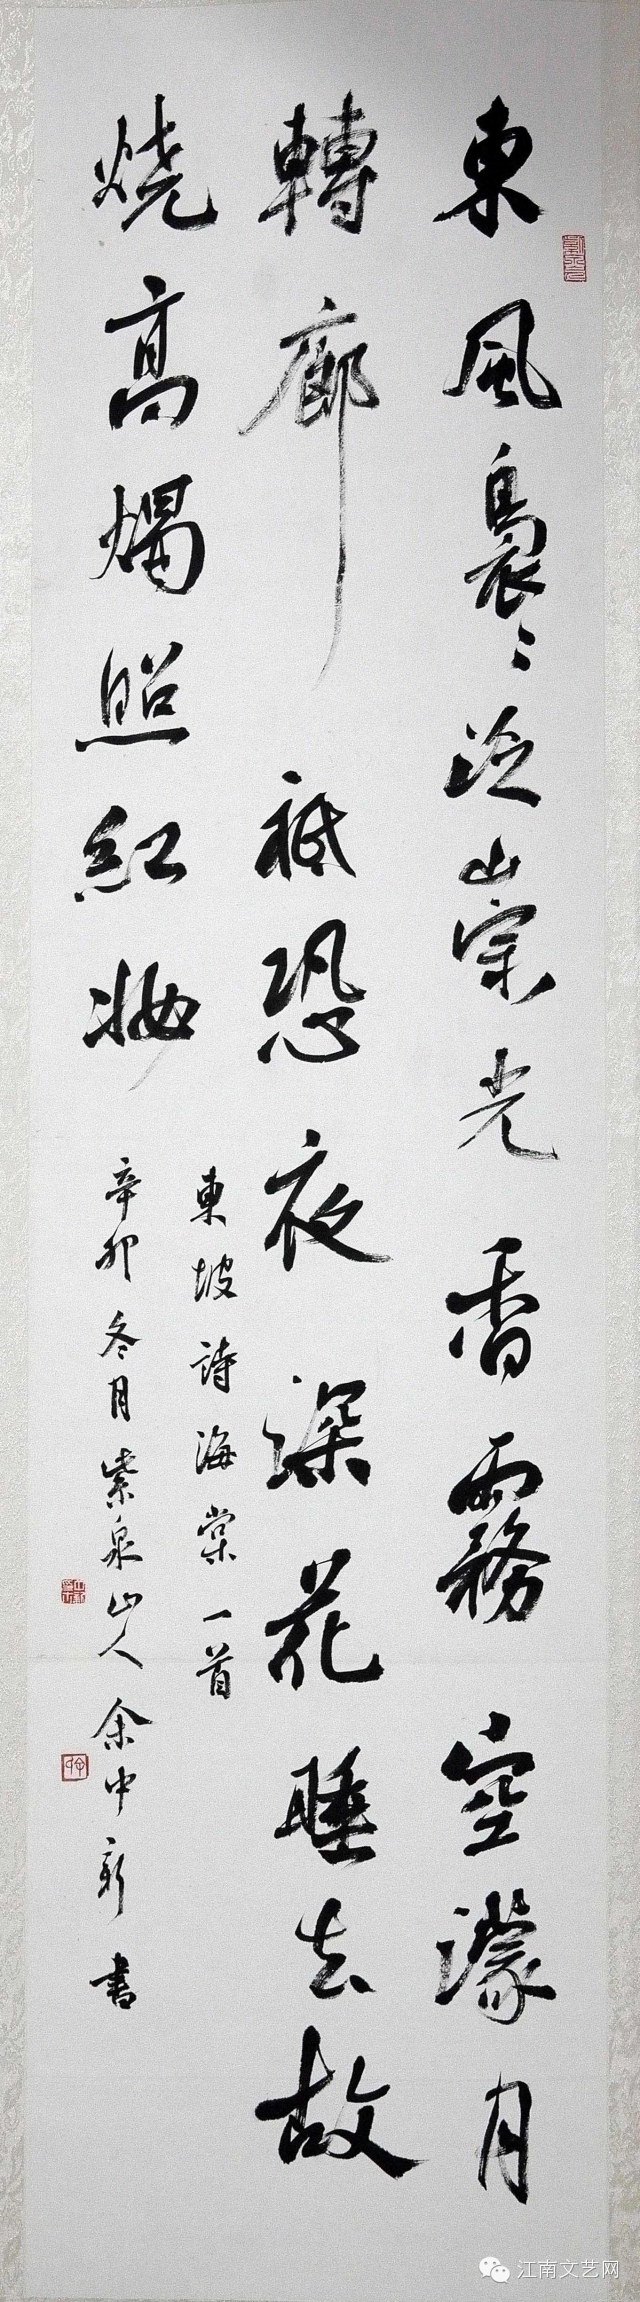 東風裊〻泛崇光香霧空濛月
轉廊祗恐夜深花睡去故
燒高燭照紅妝
東坡詩海棠一首
辛卯冬月紫泉山人余中新書
江南文艺网